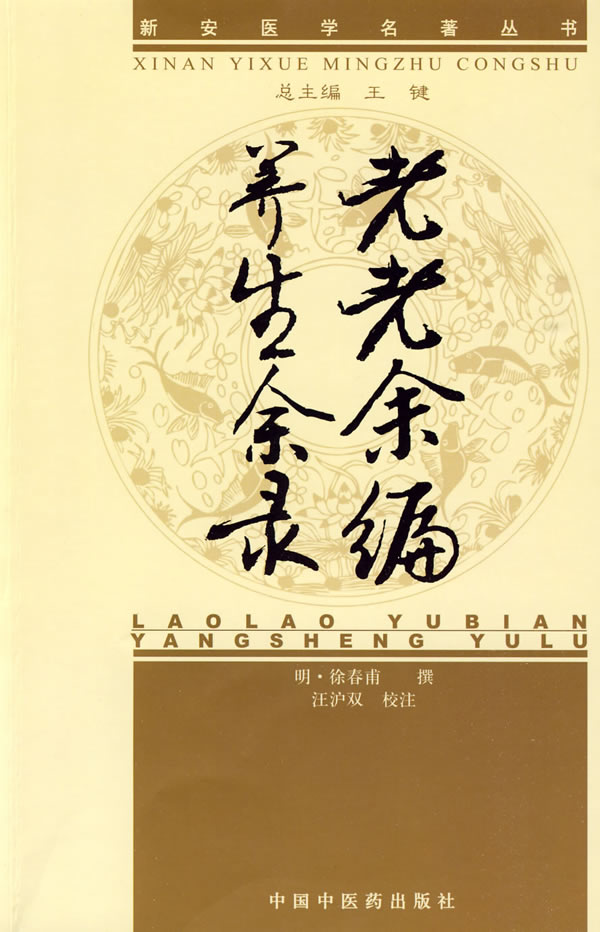 新安医学名著丛书
XINAN YIXUE MINGZHU CONGSHU
总主编 王键
老老余编
养生余录
LAOLAO YUBIAN
YANGSHENG YULU
明·徐春甫 撰
汪沪双 校注
中国中医药出版社